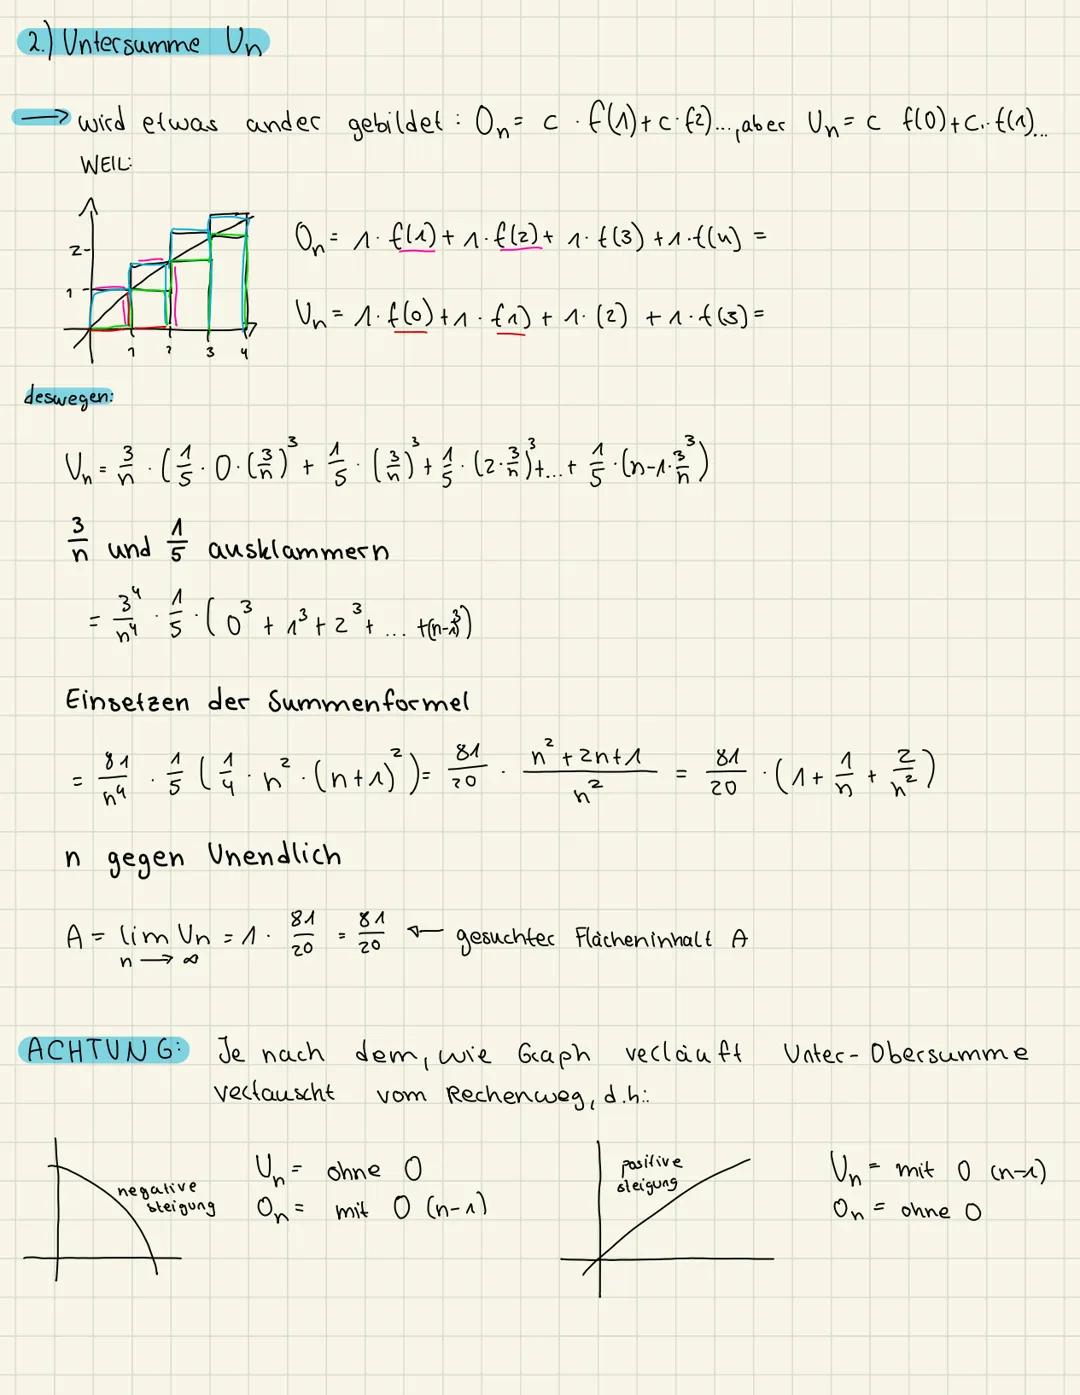 2.) Untersumme Un
→ wird etwas ander gebildet : On = c · f(1)+c·f2)..., aber Un = c f(0)+c.·f(1)...
WEIL:
2
1
1 2 3 4
On = 1· f(1) + 1·f(2) + 1·f(3) + 1·f(4) =
Un = 1·f(0) + 1·f1) + 1·(2) + 1·f(3) =
deswegen:
Un = 3/n · (1/5 · 0·(3/n)³ + 1/5 · (3/n)³ + 1/5 · (2·3/n)³ + ... + 1/5 · (n-1·3/n)³)
3/n und 1/5 ausklammern
= 3⁴/n⁴ · 1/5 · (0³ + 1³ + 2³ + ... +(n-1)³)
Einsetzen der Summenformel
= 81/n⁴ · 1/5 (1/4 · n² · (n+1)²) = 81/20 · n²+2n+1/n² = 81/20 · (1 + 1/n + 2/n²)
n gegen Unendlich
A = lim Un = 1 · 81/20 = 81/20 ← gesuchter Flächeninhalt A
n → ∞
ACHTUNG: Je nach dem, wie Graph verläuft Unter- Obersumme
vertauscht vom Rechenweg, d.h.:
negative
steigung
Un = ohne 0
On = mit 0 (n-1)
positive
steigung
Un = mit 0 (n-1)
On = ohne 0